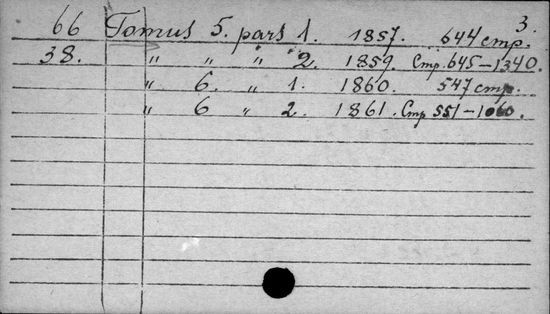 3.
66 Tomus 5. pars 1. 1857. 644 стр.
38. " " " 2. 1859. Стр. 645–1340.
" 6. " 1. 1860. 547 стр.
" 6 " 2. 1861. Стр 551–1060.